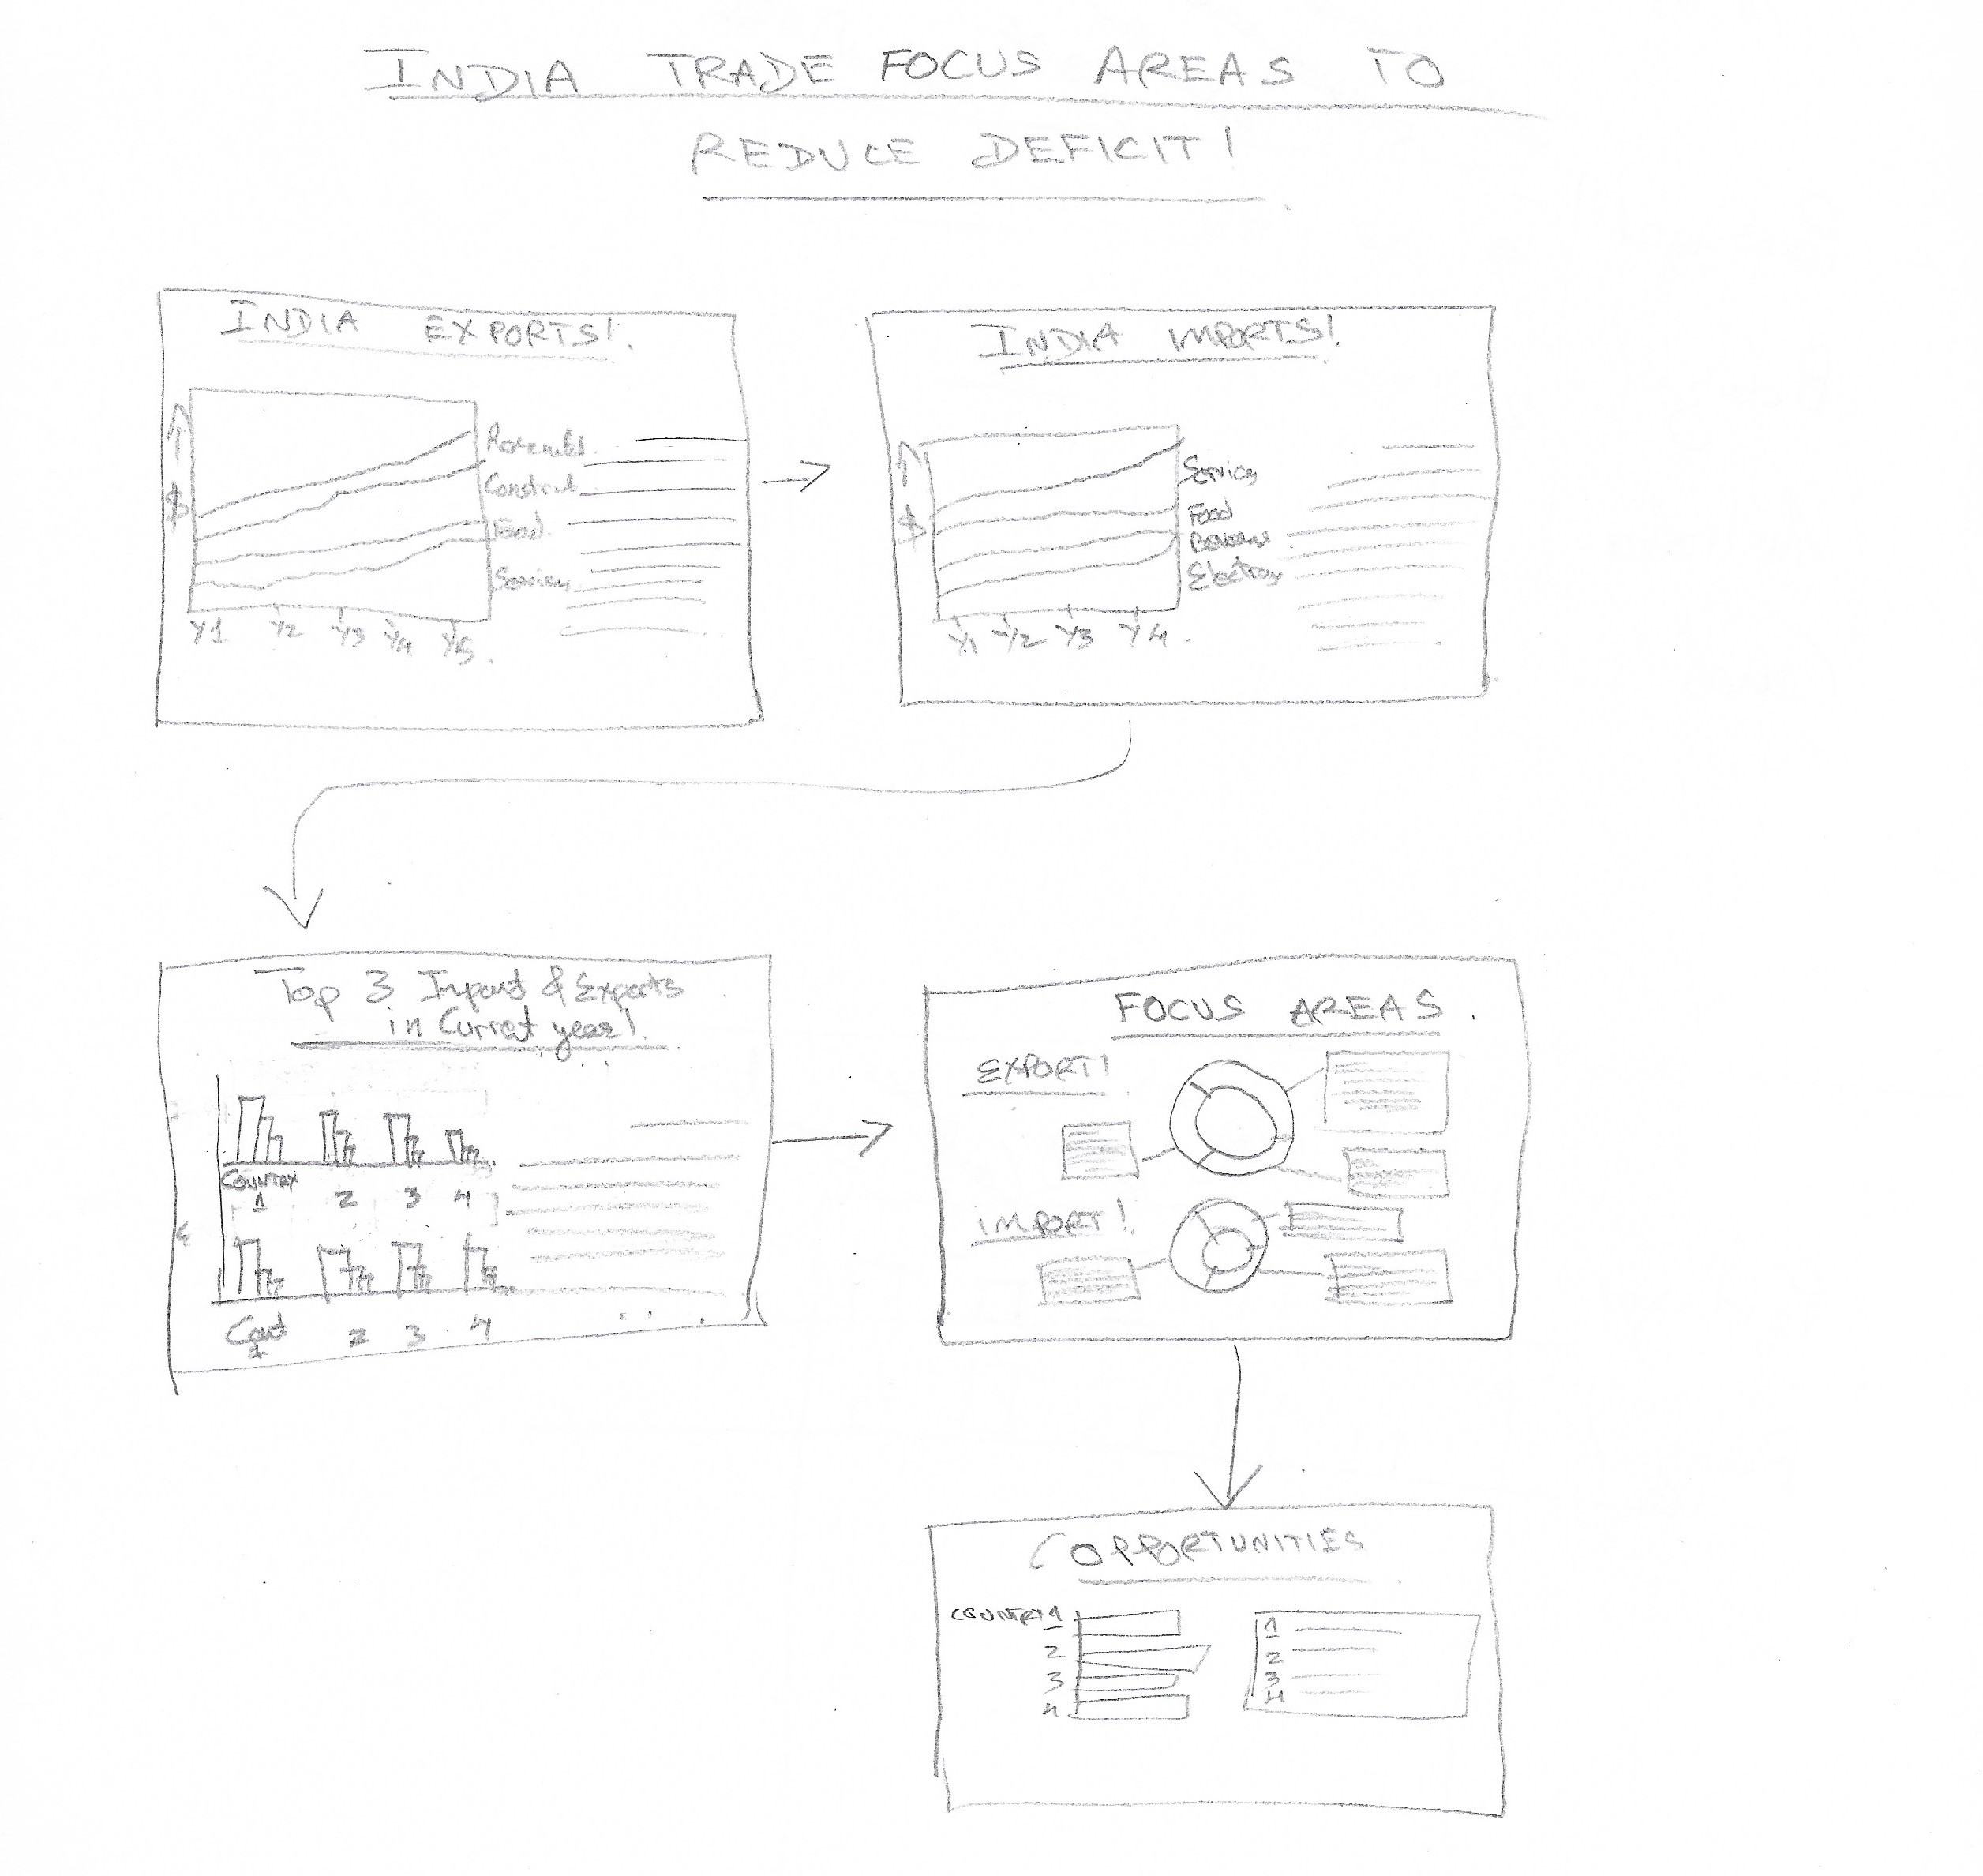 INDIA TRADE FOCUS AREAS TO
REDUCE DEFICIT!
INDIA EXPORTS!
$
Construct
Food
Services
Y1 Y2 Y3 Y4 Y5
INDIA IMPORTS!
$
Services
Food
Electron
Y1 Y2 Y3 Y4
Top 3 Import & Exports
in Curret year!
COUNTRY
1 2 3 4
Cout
1 2 3 4
FOCUS AREAS
EXPORT!
IMPORT!
OPPORTUNITIES
COUNTRY 1
2
3
4
1
2
3
4